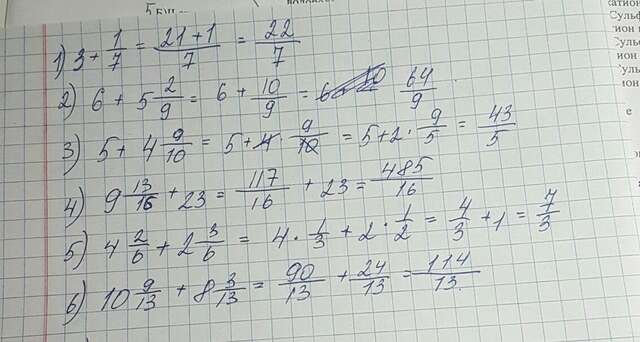 1) 3 + 1/7 = 21+1/7 = 22/7
2) 6 + 5 2/9 = 6 + 10/9 = 64/9
3) 5 + 4 9/10 = 5 + 4 · 9/10 = 5 + 2 · 9/5 = 43/5
4) 9 13/16 + 23 = 117/16 + 23 = 485/16
5) 4 2/6 + 2 3/6 = 4 · 1/3 + 2 · 1/2 = 4/3 + 1 = 7/3
6) 10 9/13 + 8 3/13 = 90/13 + 24/13 = 114/13